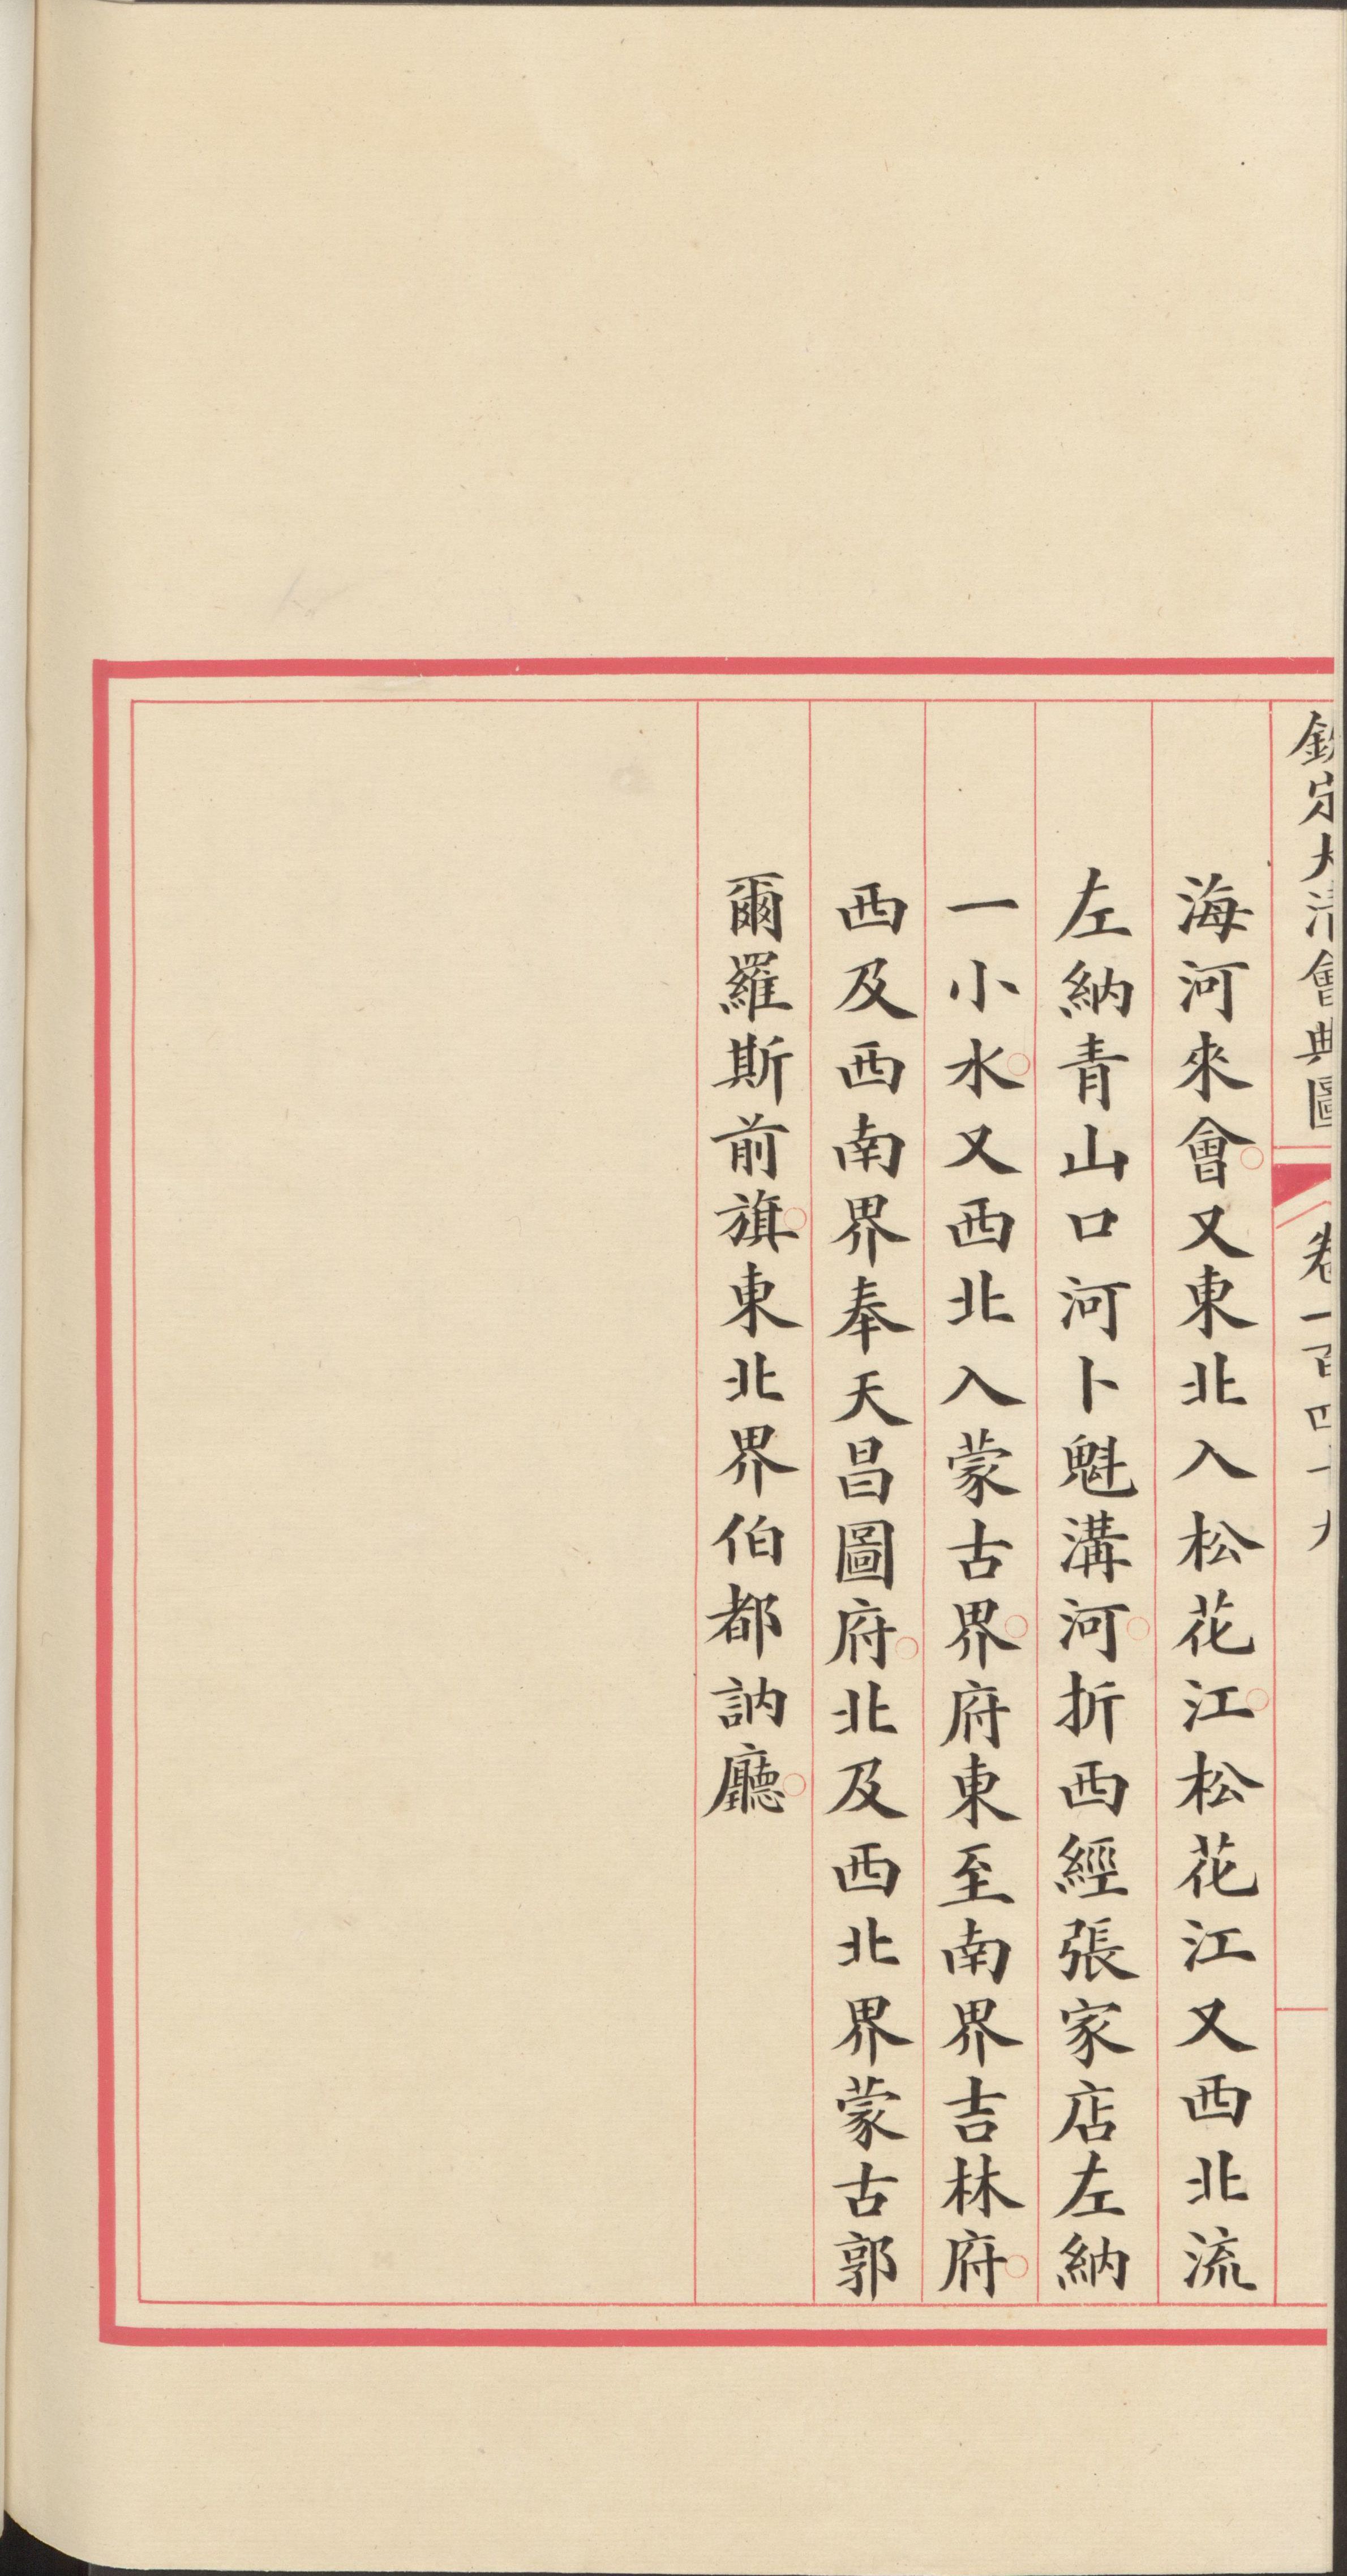 欽定大清會典圖 卷一百四十九
海河來會○又東北入松花江○松花江又西北流
左納青山口河卜魁溝河○折西經張家店左納
一小水○又西北入蒙古界○府東至南界吉林府○
西及西南界奉天昌圖府○北及西北界蒙古郭
爾羅斯前旗○東北界伯都訥廳○